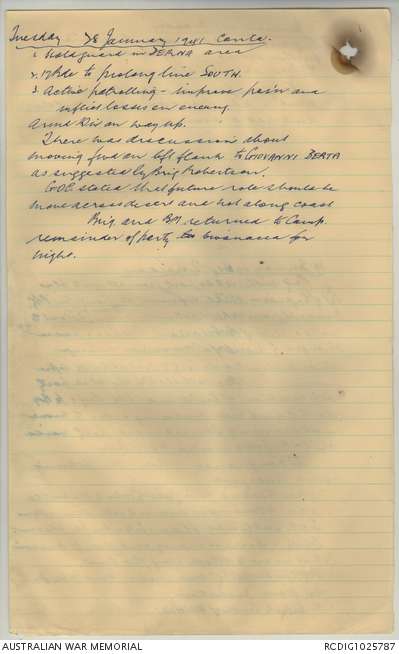 Tuesday 28 January 1941 Contd.
1. Hold guard in DERNA area
2. 17 Bde to prolong line SOUTH.
3 Active patrolling - improve posn and
inflict losses on enemy.
Armd Div on way up.
There was discussion about
moving fwd on left flank to GIOVANNI BERTA
as suggested by Brig Robertson.
GOC stated that future role should be
move across desert and not along coast
Brig and BM returned to Camp
remainder of party to for
night.
AUSTRALIAN WAR MEMORIAL
RCDIG1025787